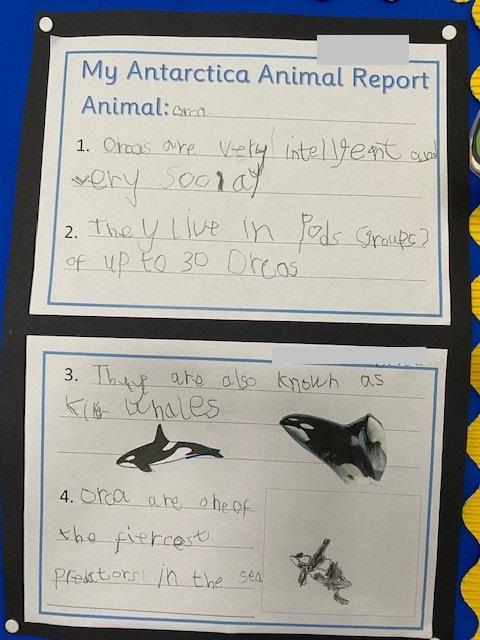 My Antarctica Animal Report
Animal: orca
1. Orcas are very intellgent and
very social
2. They live in Pods (groups)
of up to 30 Orcas
3. They are also known as
Killer Whales
4. orca are one of
the fiercest
predctors in the sea